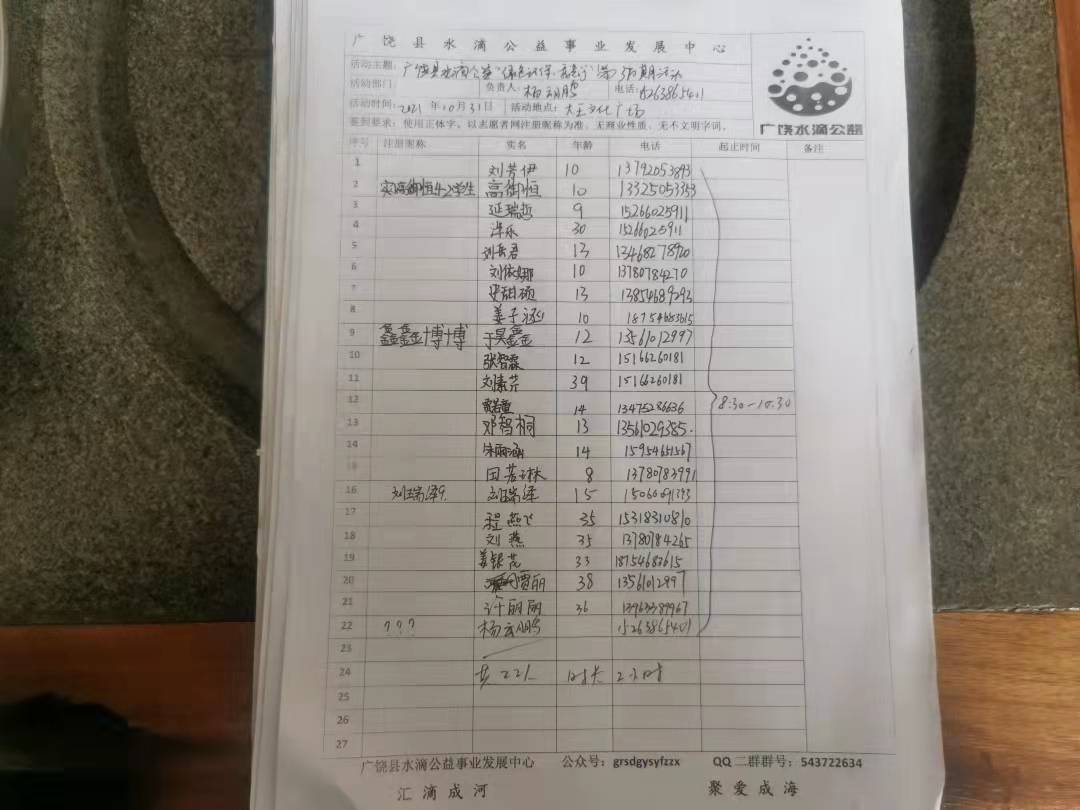 广饶县水滴公益事业发展中心
活动主题：广饶县水滴公益"绿色环保 第 期活动
活动部门 负责人：杨云鹏 电话：15263865401
活动时间：2021年10月31日 活动地点：大王文化广场
签到要求：使用正体字，以志愿者网注册昵称为准，无商业性质，无不文明字词。
广饶水滴公益
序号 注册昵称 实名 年龄 电话 起止时间 备注
1 刘芳伊 10 13792053893
2 高御恒 10 13325053353
3 延瑞哲 9 15266025911
4 30 15266025911
5 13 13468278920
6 刘依娜 10 13780784270
7 13
8 姜子涵 10 18754683615
9 鑫鑫博博 于昊鑫 12 13561012997
10 张智霖 12 15166260181
11 刘素芹 39 15166260181
12 14 13475286636 8:30-10:30
13 邓智桐 13 13561029385.
14 朱雨涵 14 15954651567
15 田芳琳 8 13780783991
16 刘瑞泽9. 刘瑞泽 15
17 程燕飞 35 15318310810
18 刘燕 35 13780784265
19 姜银花 33 18754683615
20 贾丽 38 13561012997
21 许丽丽 36
22 ??? 杨云鹏 15263865401
23
24 共22人 时长 2小时
25
26
27
广饶县水滴公益事业发展中心 公众号：grsdgysyfzzx QQ二群群号：543722634
汇滴成河 聚爱成海